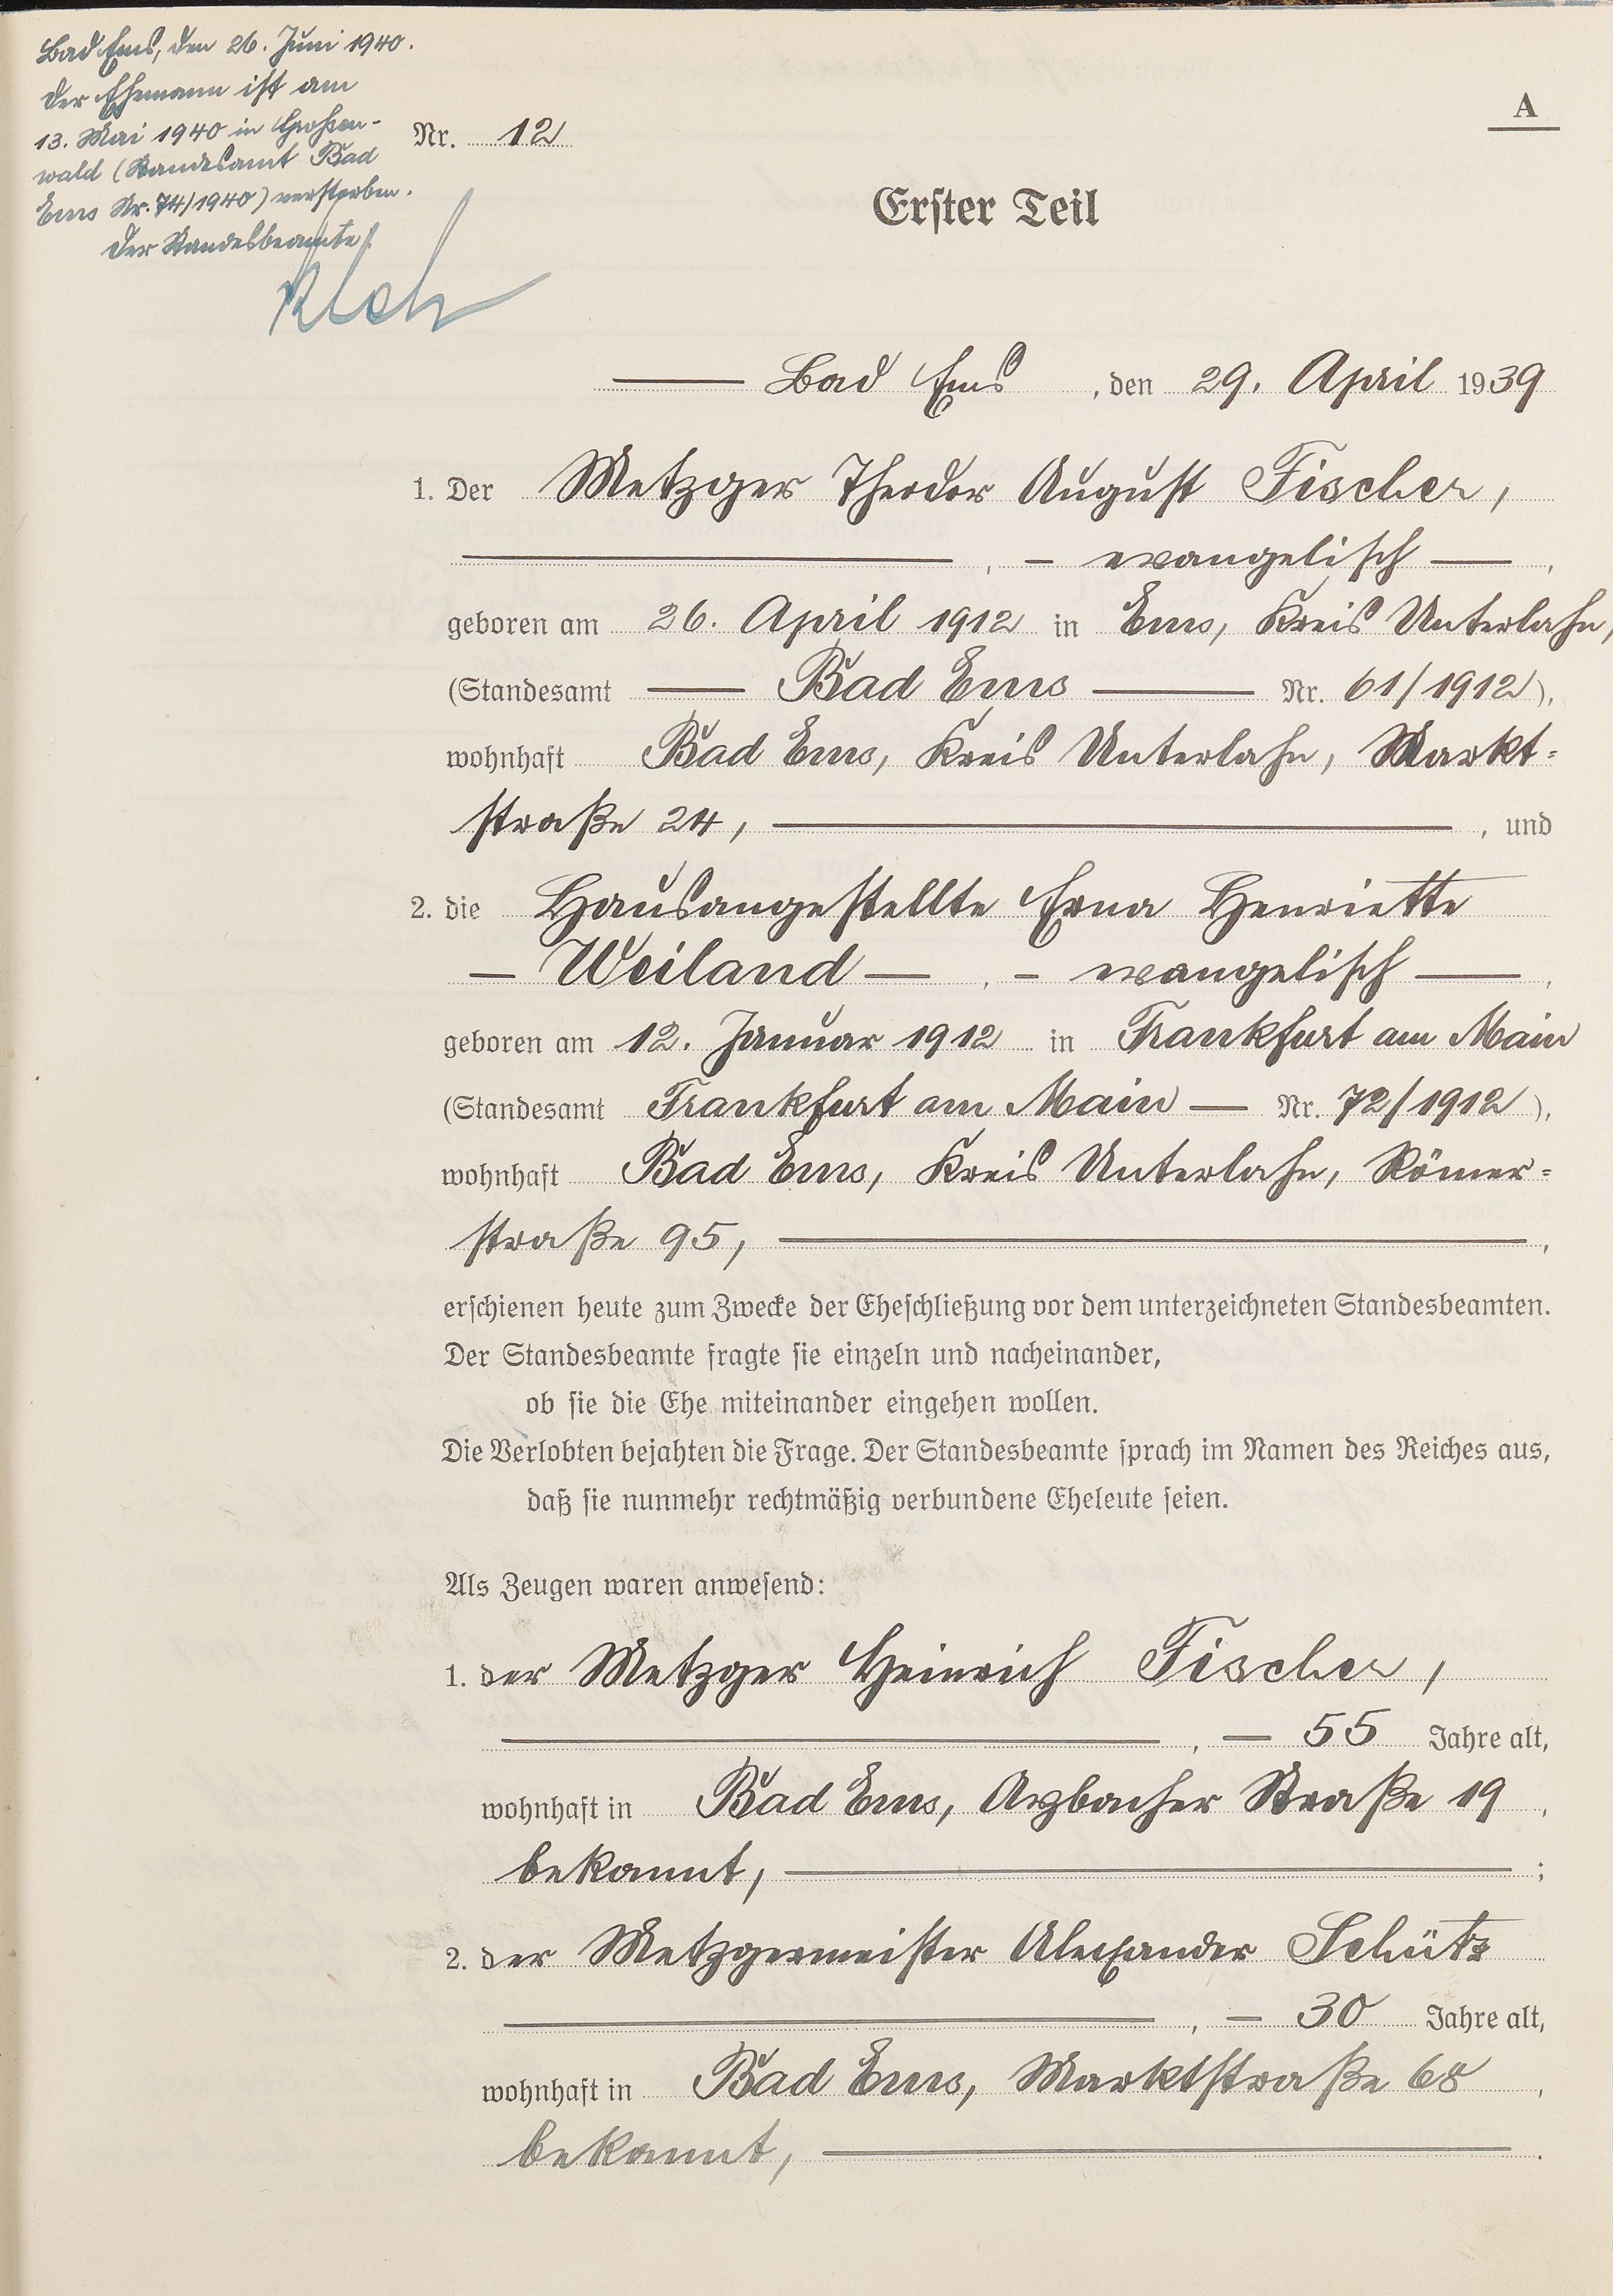 Bad Ems, den 26. Juni 1940.
Der Ehemann ist am
13. Mai 1940 in Großen-
wald (Standesamt Bad
Ems Nr. 74/1940) verstorben.
Der Standesbeamte
A
Nr. 12
Erster Teil
Bad Ems, den 29. April 1939
1. Der Metzger Theodor August Fischer,
, – evangelisch —,
geboren am 26. April 1912 in Ems, Kreis Unterlahn,
(Standesamt — Bad Ems — Nr. 61/1912),
wohnhaft Bad Ems, Kreis Unterlahn, Markt=
straße 24, —, und
2. die Hausangestellte Erna Henriette
— Weiland —, – evangelisch —,
geboren am 12. Januar 1912 in Frankfurt am Main
(Standesamt Frankfurt am Main — Nr. 72/1912),
wohnhaft Bad Ems, Kreis Unterlahn, Römer=
straße 95, —,
erschienen heute zum Zwecke der Eheschließung vor dem unterzeichneten Standesbeamten.
Der Standesbeamte fragte sie einzeln und nacheinander,
ob sie die Ehe miteinander eingehen wollen.
Die Verlobten bejahten die Frage. Der Standesbeamte sprach im Namen des Reiches aus,
daß sie nunmehr rechtmäßig verbundene Eheleute seien.
Als Zeugen waren anwesend:
1. der Metzger Heinrich Fischer,
—, — 55 Jahre alt,
wohnhaft in Bad Ems, Arzbacher Straße 19,
bekannt, —;
2. der Metzgermeister Alexander Schütz
—, — 30 Jahre alt,
wohnhaft in Bad Ems, Marktstraße 68,
bekannt, —.